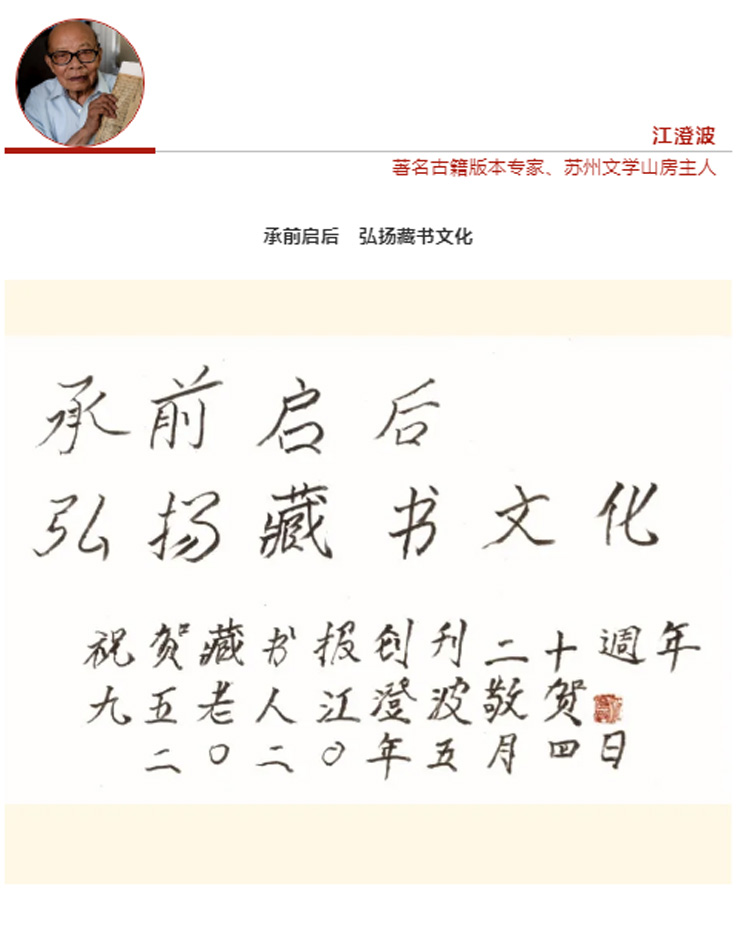 江澄波
著名古籍版本专家、苏州文学山房主人
承前启后 弘扬藏书文化
承前启后
弘扬藏书文化
祝贺藏书报创刊二十週年
九五老人江澄波敬贺
二〇二〇年五月四日